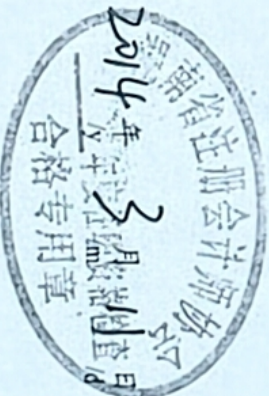 南省注册会计师协会
2014年3月 日
年度任职资格检查
合格专用章